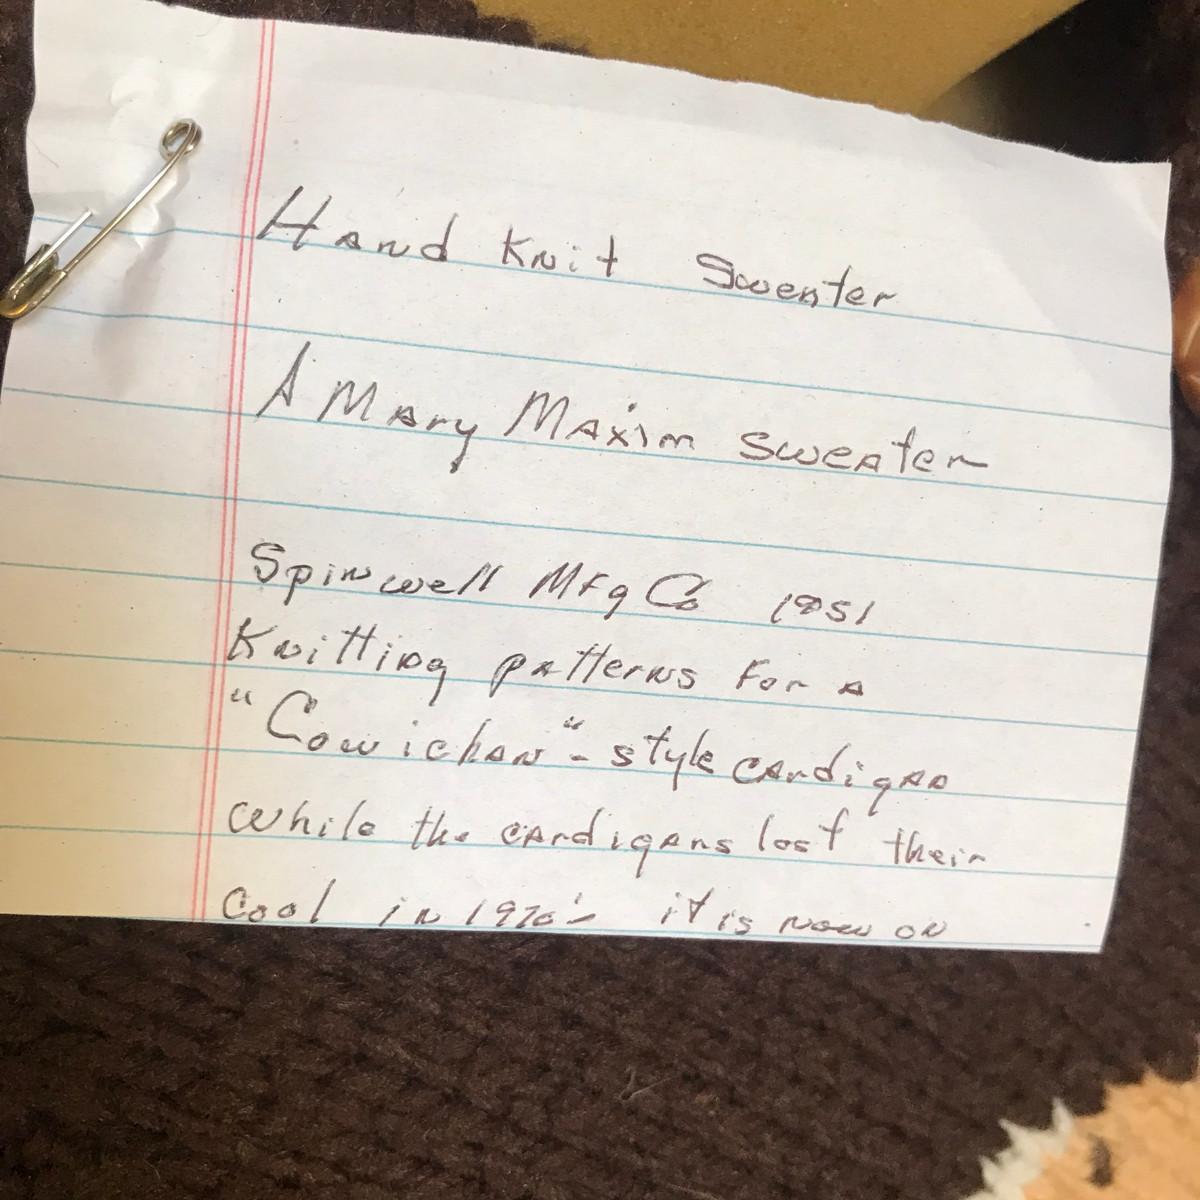 Hand Knit Sweater
A Mary Maxim Sweater
Spinwell Mfg Co 1951
Knitting patterns for a
"Cowichan"-style cardigan
while the cardigans lost their
cool in 1970's it is now on